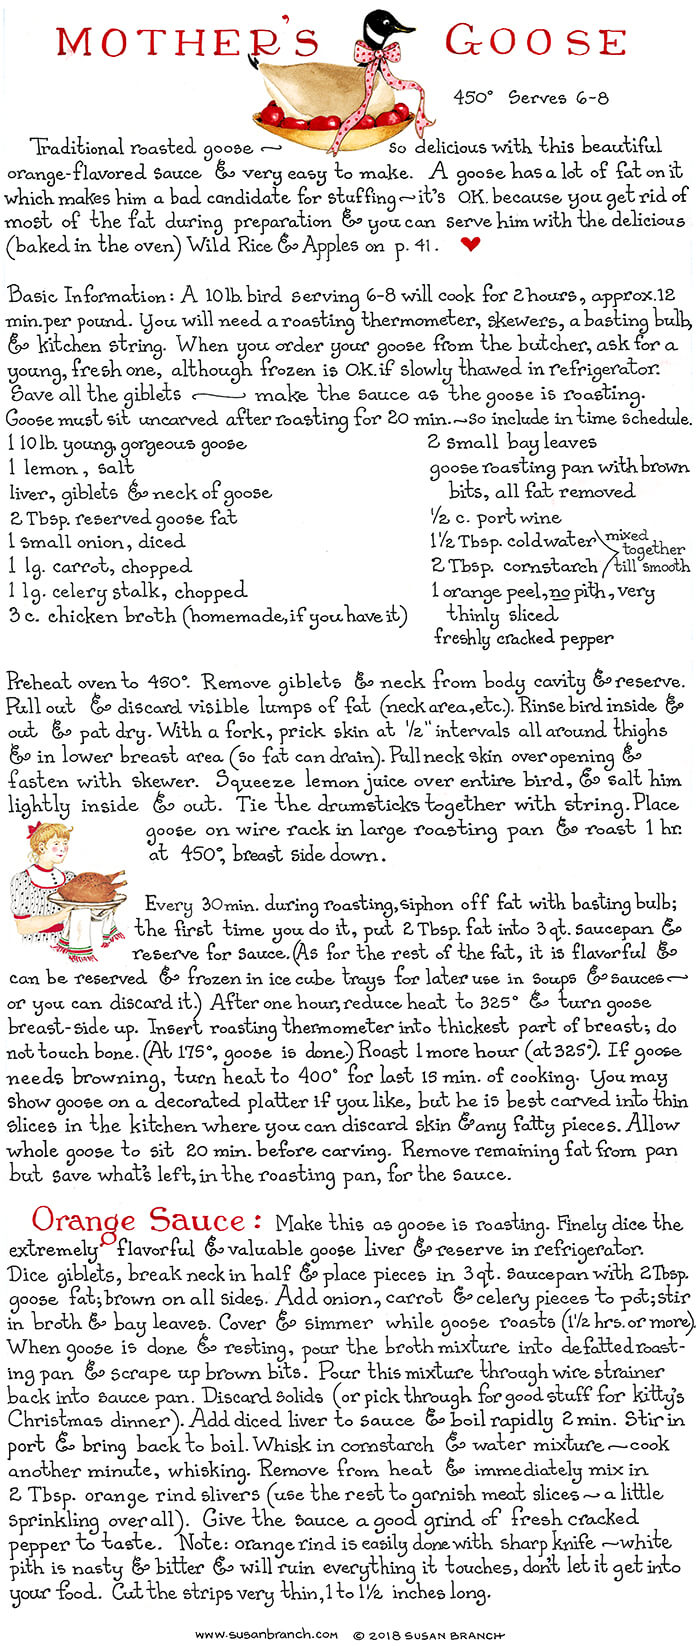 MOTHER'S GOOSE
450° Serves 6-8
Traditional roasted goose ~ so delicious with this beautiful
orange-flavored sauce & very easy to make. A goose has a lot of fat on it
which makes him a bad candidate for stuffing~it's O.K. because you get rid of
most of the fat during preparation & you can serve him with the delicious
(baked in the oven) Wild Rice & Apples on p. 41. ♥
Basic Information: A 10 lb. bird serving 6-8 will cook for 2 hours, approx. 12
min. per pound. You will need a roasting thermometer, skewers, a basting bulb,
& kitchen string. When you order your goose from the butcher, ask for a
young, fresh one, although frozen is O.K. if slowly thawed in refrigerator.
Save all the giblets ~ make the sauce as the goose is roasting.
Goose must sit uncarved after roasting for 20 min.~so include in time schedule.
1 10 lb. young, gorgeous goose
1 lemon, salt
liver, giblets & neck of goose
2 Tbsp. reserved goose fat
1 small onion, diced
1 lg. carrot, chopped
1 lg. celery stalk, chopped
3 c. chicken broth (homemade, if you have it)
2 small bay leaves
goose roasting pan with brown
bits, all fat removed
½ c. port wine
1½ Tbsp. cold water
2 Tbsp. cornstarch
mixed
together
till smooth
1 orange peel, no pith, very
thinly sliced
freshly cracked pepper
Preheat oven to 450°. Remove giblets & neck from body cavity & reserve.
Pull out & discard visible lumps of fat (neck area, etc.). Rinse bird inside &
out & pat dry. With a fork, prick skin at ½" intervals all around thighs
& in lower breast area (so fat can drain). Pull neck skin over opening &
fasten with skewer. Squeeze lemon juice over entire bird, & salt him
lightly inside & out. Tie the drumsticks together with string. Place
goose on wire rack in large roasting pan & roast 1 hr.
at 450°, breast side down.
Every 30 min. during roasting, siphon off fat with basting bulb;
the first time you do it, put 2 Tbsp. fat into 3 qt. saucepan &
reserve for sauce. (As for the rest of the fat, it is flavorful &
can be reserved & frozen in ice cube trays for later use in soups & sauces~
or you can discard it.) After one hour, reduce heat to 325° & turn goose
breast-side up. Insert roasting thermometer into thickest part of breast; do
not touch bone. (At 175°, goose is done.) Roast 1 more hour (at 325°). If goose
needs browning, turn heat to 400° for last 15 min. of cooking. You may
show goose on a decorated platter if you like, but he is best carved into thin
slices in the kitchen where you can discard skin & any fatty pieces. Allow
whole goose to sit 20 min. before carving. Remove remaining fat from pan
but save what's left, in the roasting pan, for the sauce.
Orange Sauce: Make this as goose is roasting. Finely dice the
extremely flavorful & valuable goose liver & reserve in refrigerator.
Dice giblets, break neck in half & place pieces in 3 qt. saucepan with 2 Tbsp.
goose fat; brown on all sides. Add onion, carrot & celery pieces to pot; stir
in broth & bay leaves. Cover & simmer while goose roasts (1½ hrs. or more).
When goose is done & resting, pour the broth mixture into defatted roast-
ing pan & scrape up brown bits. Pour this mixture through wire strainer
back into sauce pan. Discard solids (or pick through for good stuff for kitty's
Christmas dinner). Add diced liver to sauce & boil rapidly 2 min. Stir in
port & bring back to boil. Whisk in cornstarch & water mixture~cook
another minute, whisking. Remove from heat & immediately mix in
2 Tbsp. orange rind slivers (use the rest to garnish meat slices~a little
sprinkling over all). Give the sauce a good grind of fresh cracked
pepper to taste. Note: orange rind is easily done with sharp knife ~white
pith is nasty & bitter & will ruin everything it touches, don't let it get into
your food. Cut the strips very thin, 1 to 1½ inches long.
www.susanbranch.com © 2018 SUSAN BRANCH